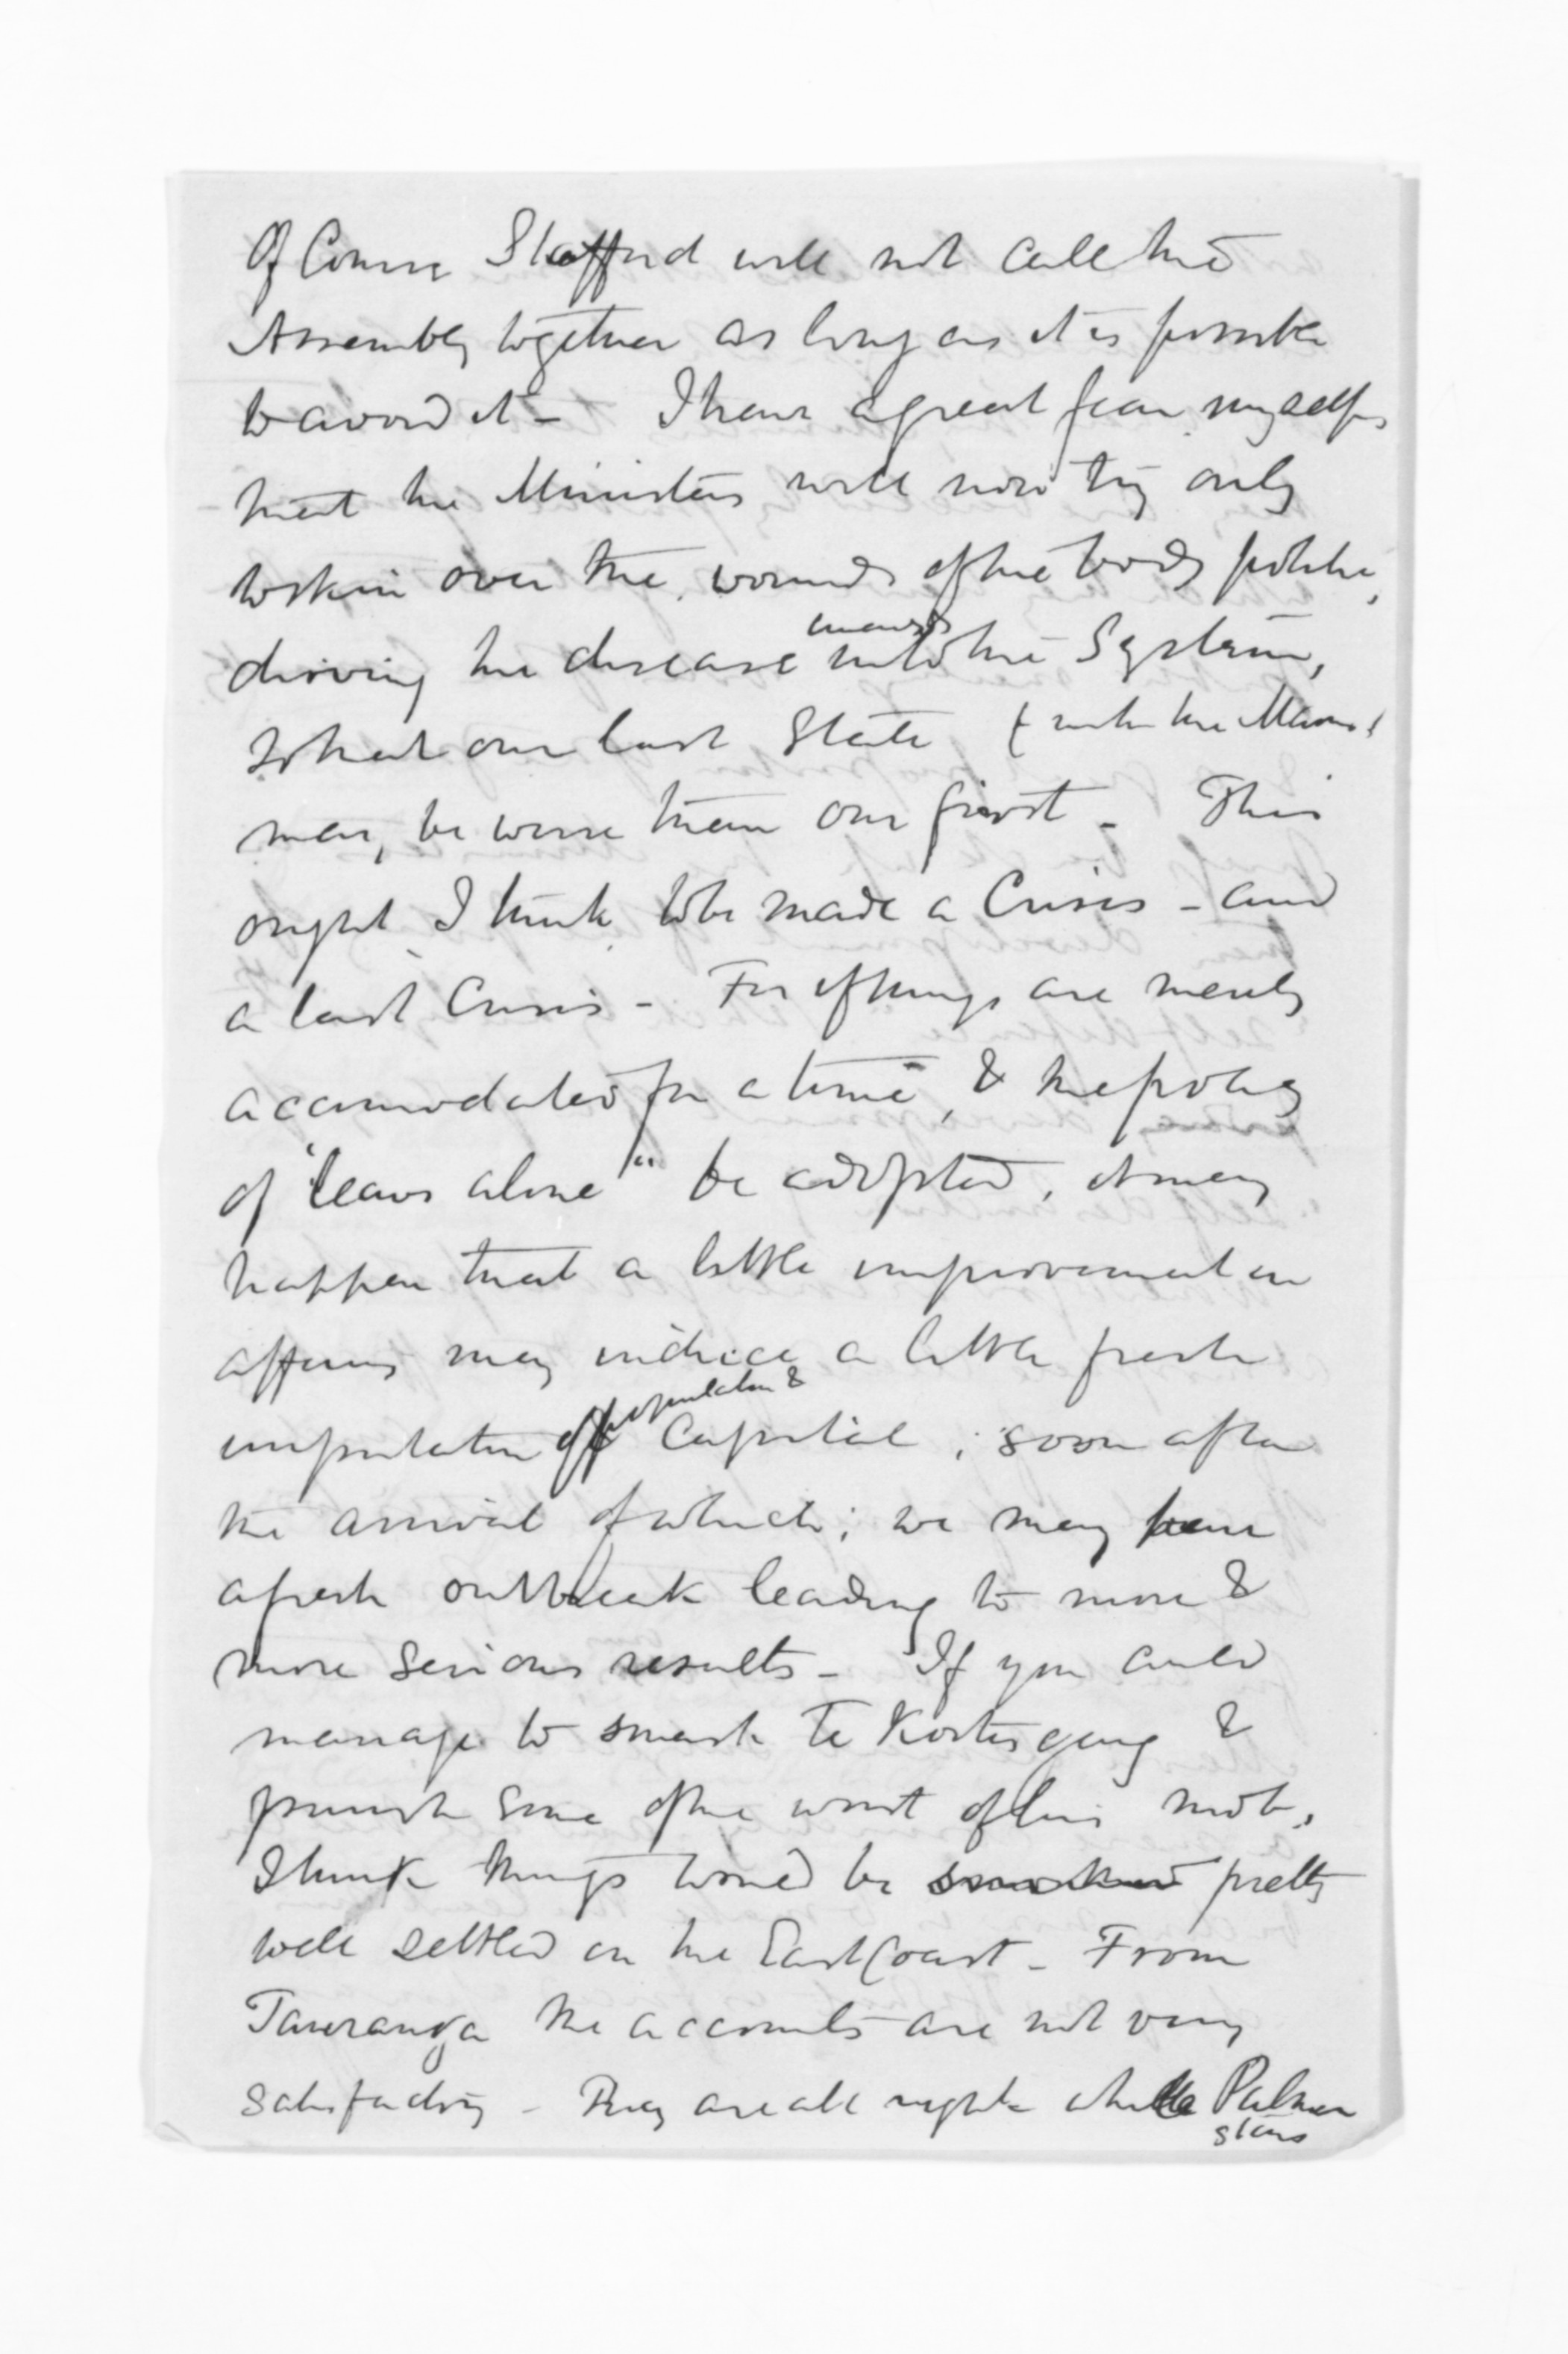 Of Course Stafford will not call the
Assembly together as long as it is possible
to avoid it - I have a great fear myself,
that the Ministers will now try only
to skin over the wounds of the body politic,
driving the disease inwards into the System,
so that our last State (with the Maoris)
may be worse than our first - This
ought I think to be made a Crisis - and
a last Crisis - For if things are merely
accomodated for a time, & the policy
of "leave alone" be adopted, it may
happen that a little improvement in
affairs may induce a little fresh
importation of population & Capital; soon after
the arrival of which; we may have
a fresh outbreak leading to more &
more serious results - If you could
manage to smash Te Kooti's gang &
punish some of the worst of his mob,
I think things would be pretty
well settled on the East Coast - From
Tauranga the accounts are not very
satisfactory - They are all right while Palmer
stays